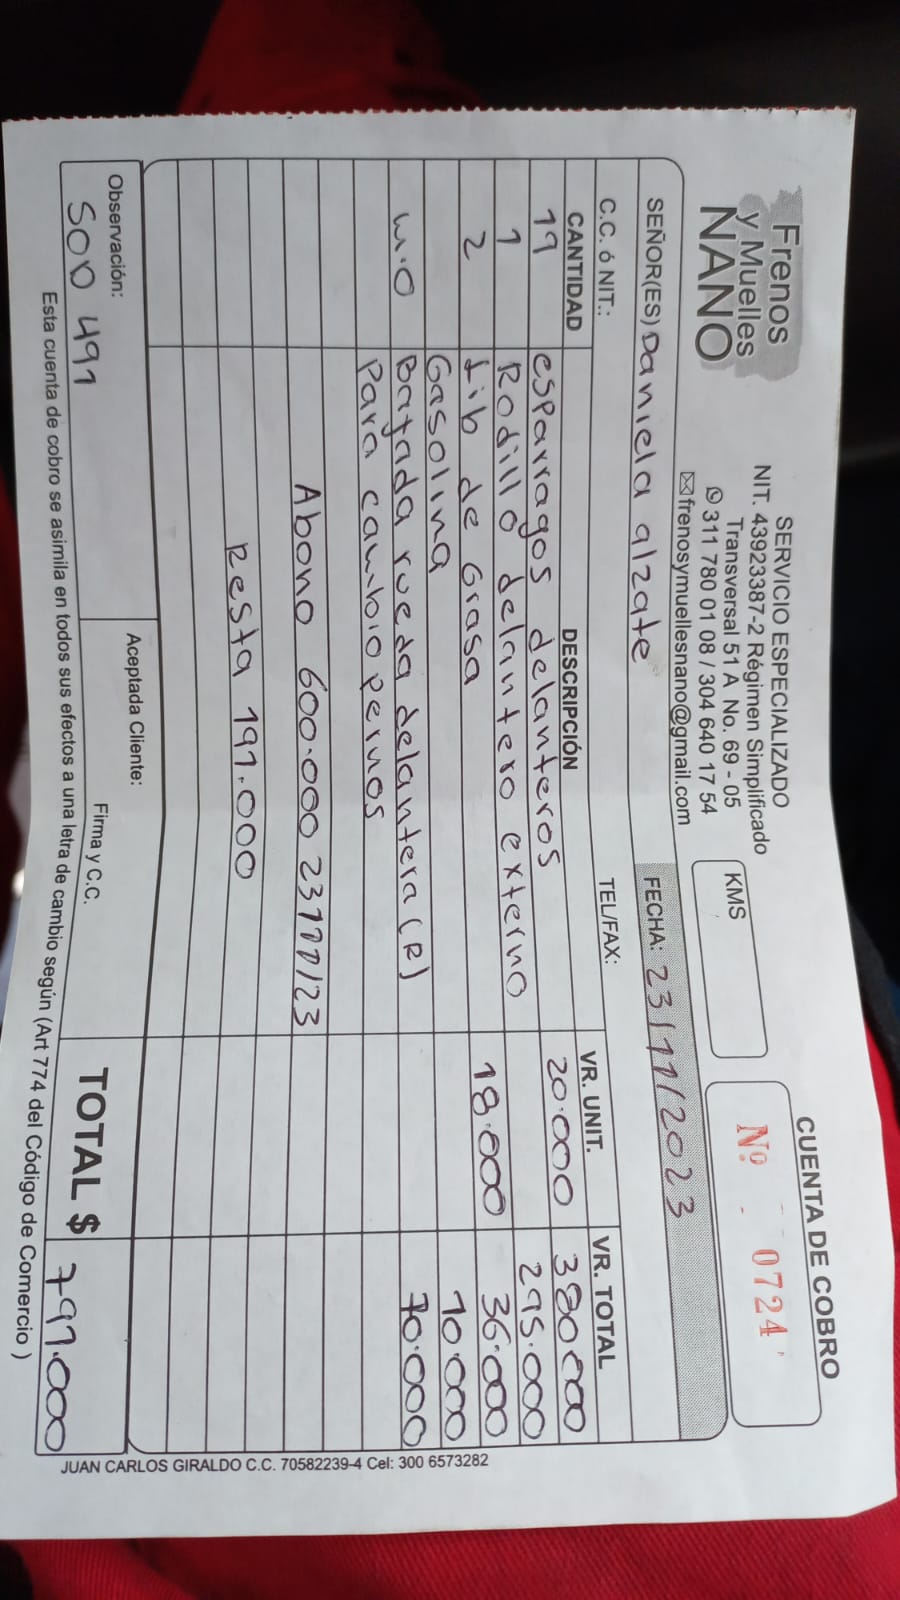 Frenos
y Muelles
NANO
SERVICIO ESPECIALIZADO
NIT. 43923387-2 Régimen Simplificado
Transversal 51 A No. 69 - 05
311 780 01 08 / 304 640 17 54
frenosymuellesnano@gmail.com
KMS
CUENTA DE COBRO
Nº 0724
SEÑOR(ES) Daniela alzate
FECHA: 23/11/2023
C.C. ó NIT.: TEL/FAX:
CANTIDAD DESCRIPCIÓN VR. UNIT. VR. TOTAL
19 esparragos delanteros 20.000 380.000
1 Rodillo delantero externo 295.000
2 Lib de Grasa 18.000 36.000
Gasolina 10.000
M.O Bajada rueda delantera (R) 70.000
Para cambio pernos
Abono 600.000 2311/23
Resta 191.000
Observación:
SOD 491
Aceptada Cliente:
Firma y C.C.
TOTAL $ 791.000
Esta cuenta de cobro se asimila en todos sus efectos a una letra de cambio según (Art 774 del Código de Comercio )
JUAN CARLOS GIRALDO C.C. 70582239-4 Cel: 300 6573282